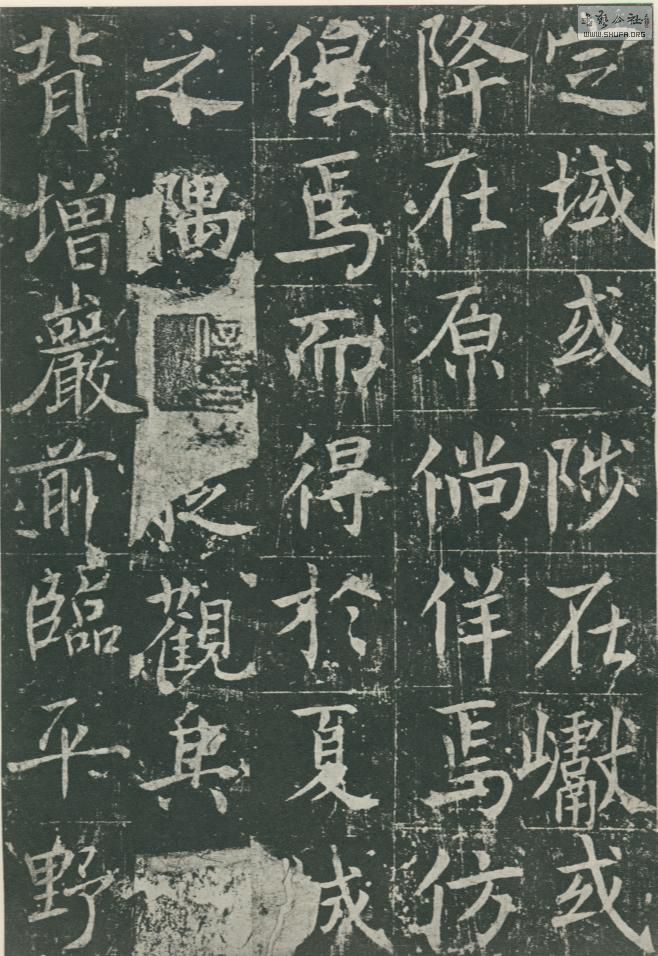 定域或陟在巘或
降在原倘佯焉仿
偟焉而得於夏
之隅觀其
背增巖前臨平野
WWW.SHUFA.ORG